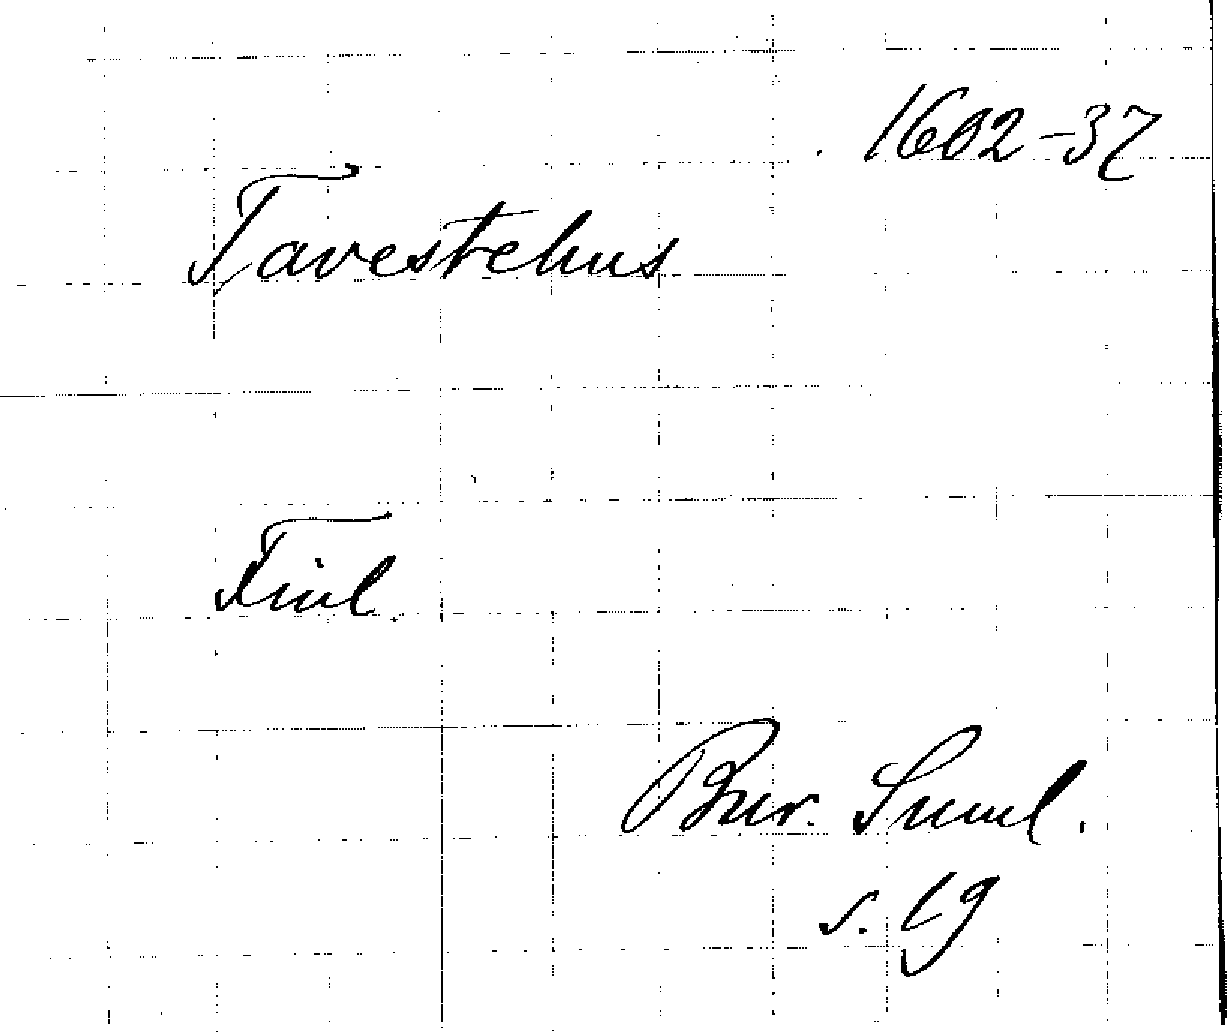 1602-37
Tavestehus
Finl.
Bur. Suml.
s. 19